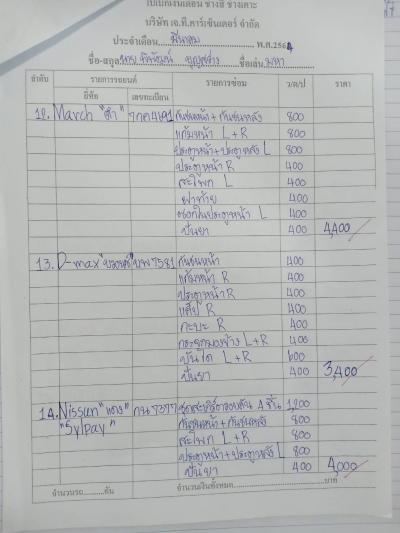 ใบเบิกเงินเดือน ช่างสี ช่างเคาะ
บริษัท เจ.ที.คาร์เซ็นเตอร์ จำกัด
ประจำเดือน มีนาคม พ.ศ.2564
ชื่อ-สกุล บุญสว่าง ชื่อเล่น มหา
ลำดับ รายการรถยนต์ รายการซ่อม ว/ด/ป ราคา
ยี่ห้อ เลขทะเบียน
12. March "ดำ" 7กด4691 กันชนหน้า+กันชนหลัง 800
แก้มหน้า L+R 800
ประตูหน้า+ประตูหลัง L 800
ประตูหน้า R 400
สะโพก L 400
ฝาท้าย 400
ซอกในประตูหน้า L 400
ปั่นยา 400 4,400
13. D-max "บรอนซ์" บพ7581 กันชนหน้า 400
แก้มหน้า R 400
ประตูหน้า R 400
แค็ป R 400
กะบะ R 400
กระจกมองข้าง L+R 400
บันได L+R 600
ปั่นยา 400 3,400
14. Nissun "แดง" กน7377 ชุดสเกิร์ตรอบคัน 4 ชิ้น 1,200
"Sylpay" กันชนหน้า+กันชนหลัง 800
สะโพก L+R 800
ประตูหน้า+ประตูหลัง L 800
ปั่นยา 400 4,000
จำนวนรถ..........คัน จำนวนเงินทั้งหมด..........บาท